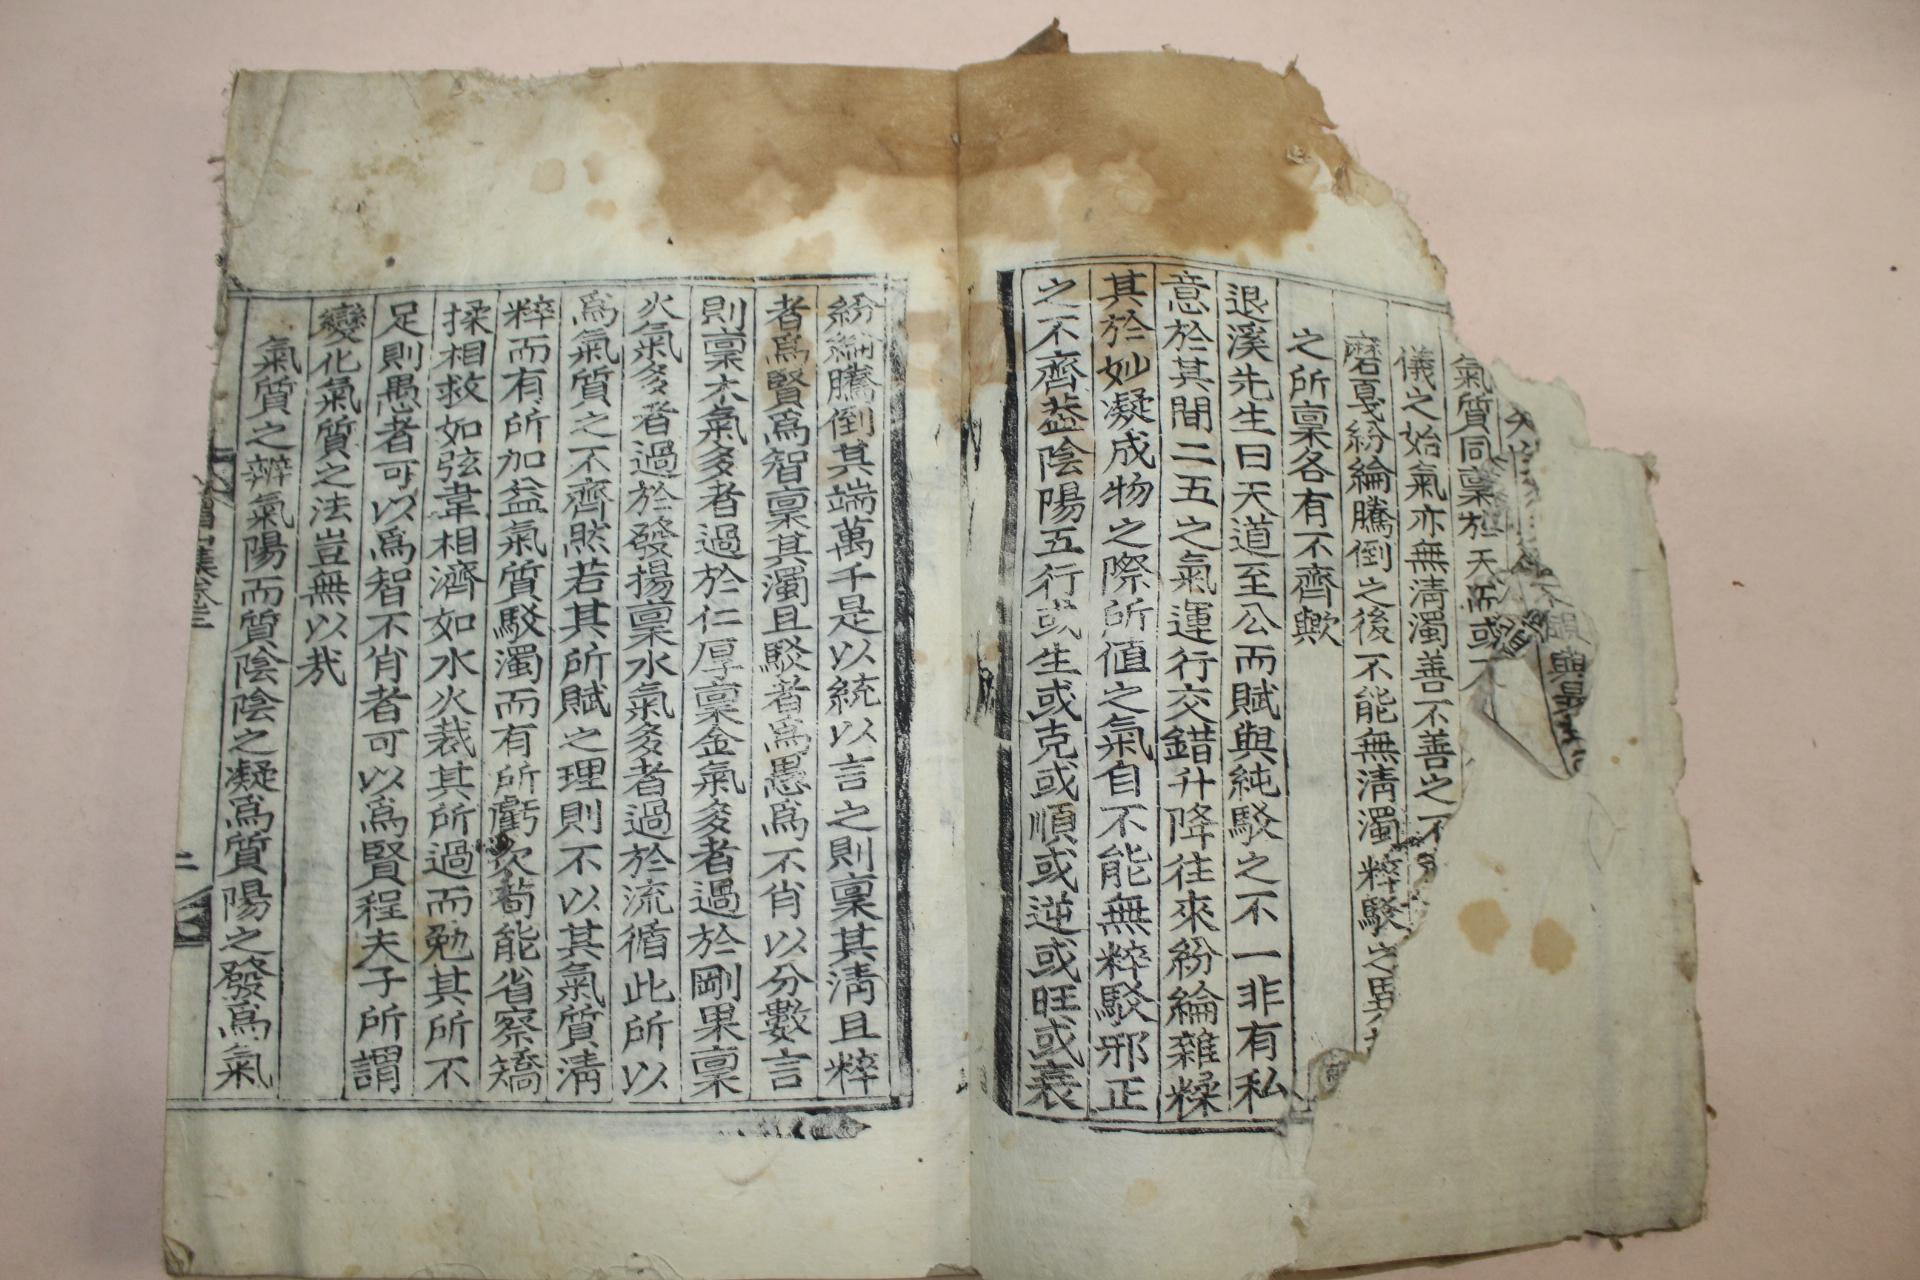 氣質同禀於天而或
儀之始氣亦無淸濁善不善之
磨戛紛綸騰倒之後不能無淸濁粹駁之異
之所禀各有不齊歟
退溪先生曰天道至公而賦與純駁之不一非有私
意於其間二五之氣運行交錯升降往來紛綸雜糅
其於妙凝成物之際所値之氣自不能無粹駁邪正
之不齊盖陰陽五行或生或克或順或逆或旺或衰
紛綸騰倒其端萬千是以統以言之則禀其淸且粹
者爲賢爲智禀其濁且駁者爲愚爲不肖以分數言
則禀木氣多者過於仁厚禀金氣多者過於剛果禀
火氣多者過於發揚禀水氣多者過於流循此所以
爲氣質之不齊然若其所賦之理則不以其氣質淸
粹而有所加益氣質駁濁而有所虧欠苟能省察矯
揉相救如弦韋相濟如水火裁其所過而勉其所不
足則愚者可以爲智不肖者可以爲賢程夫子所謂
變化氣質之法豈無以哉
氣質之辨氣陽而質陰陰之凝爲質陽之發爲氣